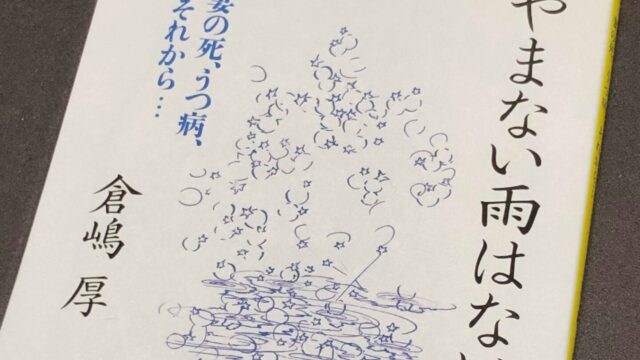 やまない雨はない
妻の死、うつ病、
それから…
倉嶋 厚